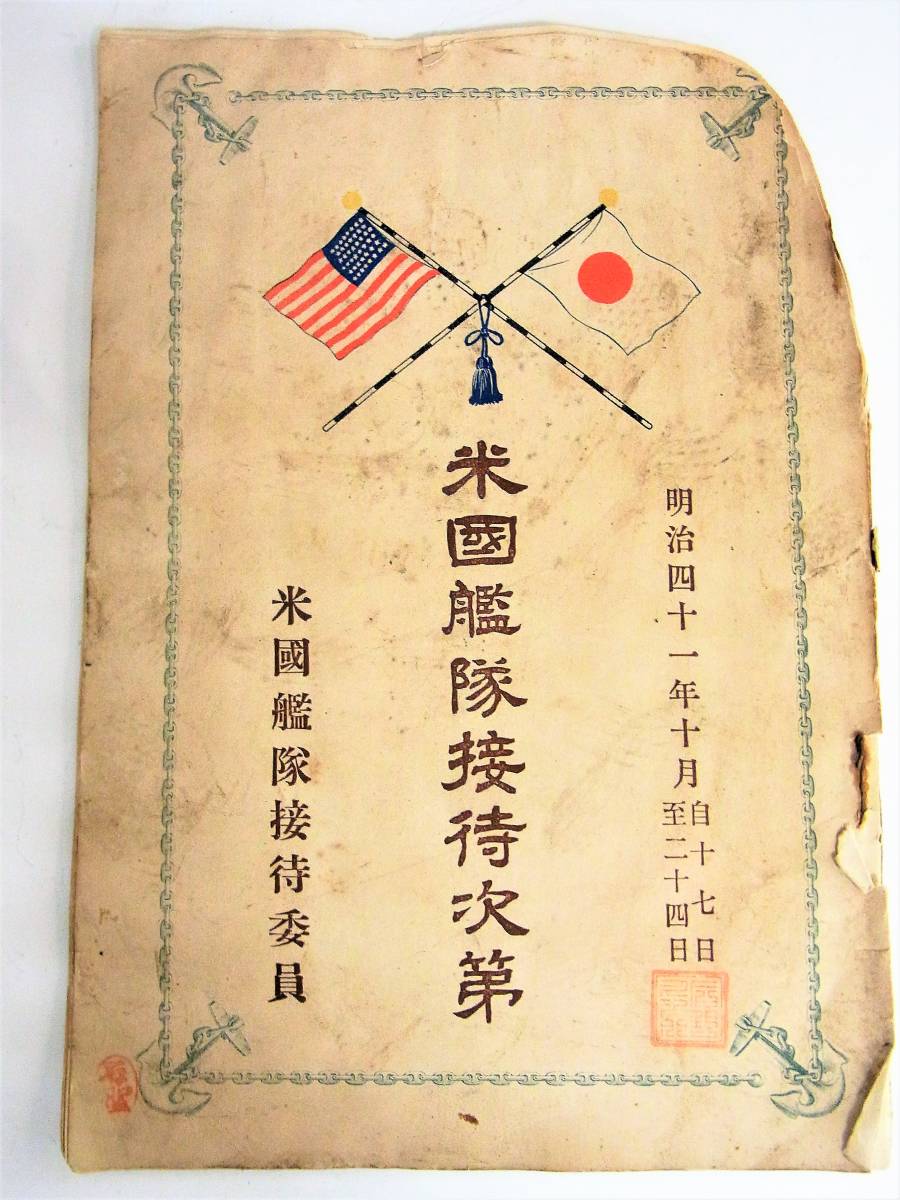 明治四十一年十月自十七日
至二十四日
米國艦隊接待次第
米國艦隊接待委員